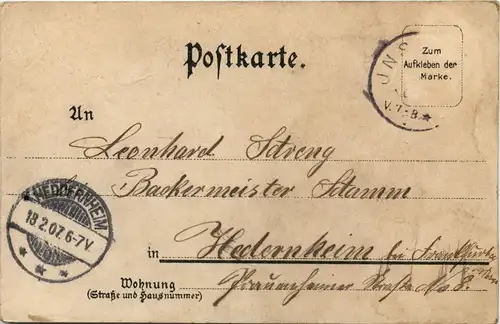 Postkarte.
Zum
Aufkleben der
Marke.
V. 7-8.
An
Leonhard Streng
Backermeister Stamm
HEDDERNHEIM
18.2.07. 6-7V.
in Hedernheim bei
Wohnung
(Straße und Hausnummer)
Straße No 8.